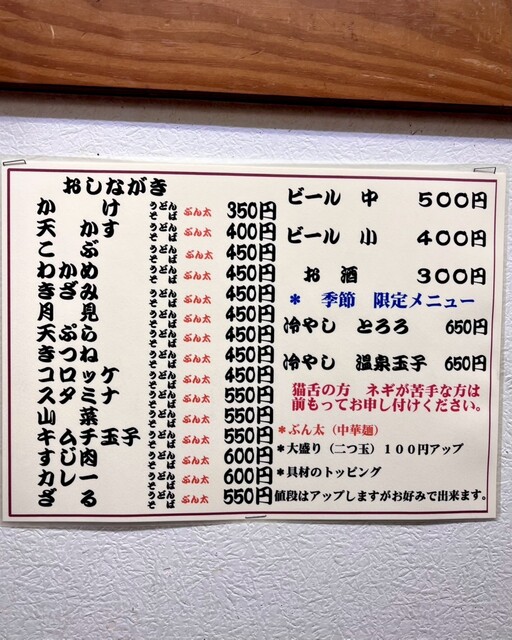 おしながき
かけ うどん そば ぶん太 350円
天かす うどん そば ぶん太 400円
こぶ うどん そば ぶん太 450円
わかめ うどん そば ぶん太 450円
きざみ うどん そば ぶん太 450円
月見 うどん そば ぶん太 450円
天ぷら うどん そば ぶん太 450円
きつね うどん そば ぶん太 450円
コロッケ うどん そば ぶん太 450円
スタミナ うどん そば ぶん太 550円
山菜 うどん そば ぶん太 550円
キムチ玉子 うどん そば ぶん太 550円
すじ肉 うどん そば ぶん太 600円
カレー うどん そば ぶん太 600円
ざる うどん そば ぶん太 550円
ビール 中 500円
ビール 小 400円
お酒 300円
* 季節 限定メニュー
冷やし とろろ 650円
冷やし 温泉玉子 650円
猫舌の方 ネギが苦手な方は
前もってお申し付けください。
*ぶん太（中華麺）
*大盛り（二つ玉）１００円アップ
*具材のトッピング
値段はアップしますがお好みで出来ます。